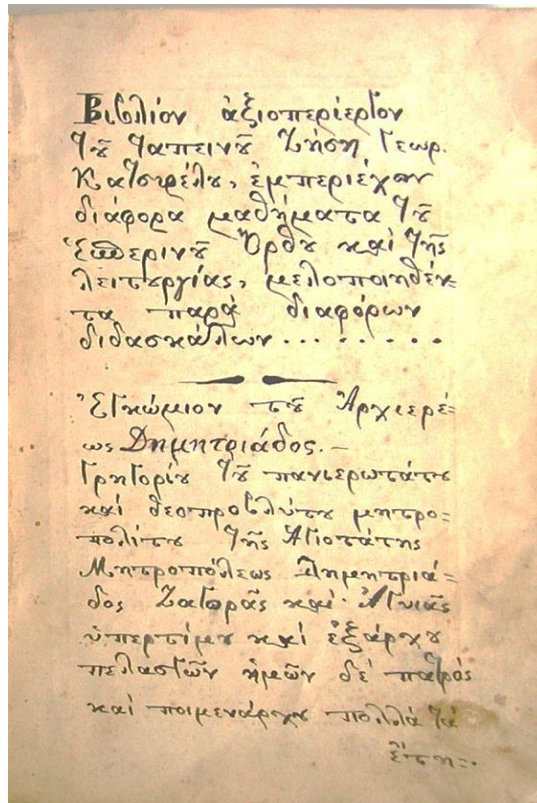 Βιβλίον ἀξιοπερίεργον
τοῦ ταπεινοῦ Ζήση Γεωρ.
Κατσιρέλου, ἐμπεριέχον
διάφορα μαθήματα τοῦ
Ἑσπερινοῦ Ὄρθρου καὶ τῆς
λειτουργίας, μελοποιηθέν=
τα παρὰ διαφόρων
διδασκάλων . . . . . . . .
Ἐγκώμιον τοῦ Ἀρχιερέ=
ως Δημητριάδος.–
Γρηγορίου τοῦ πανιερωτάτου
καὶ θεοπροβλύτου μητρο=
πολίτου τῆς Ἁγιοτάτης
Μητροπόλεως Δημητριά=
δος Ζαγορᾶς καὶ Ἀγυιᾶς
ὑπερτίμου καὶ ἐξάρχου
πελασγῶν ἡμῶν δὲ πατρὸς
καὶ ποιμενάρχου πολλὰ τὰ
ἔτη=.